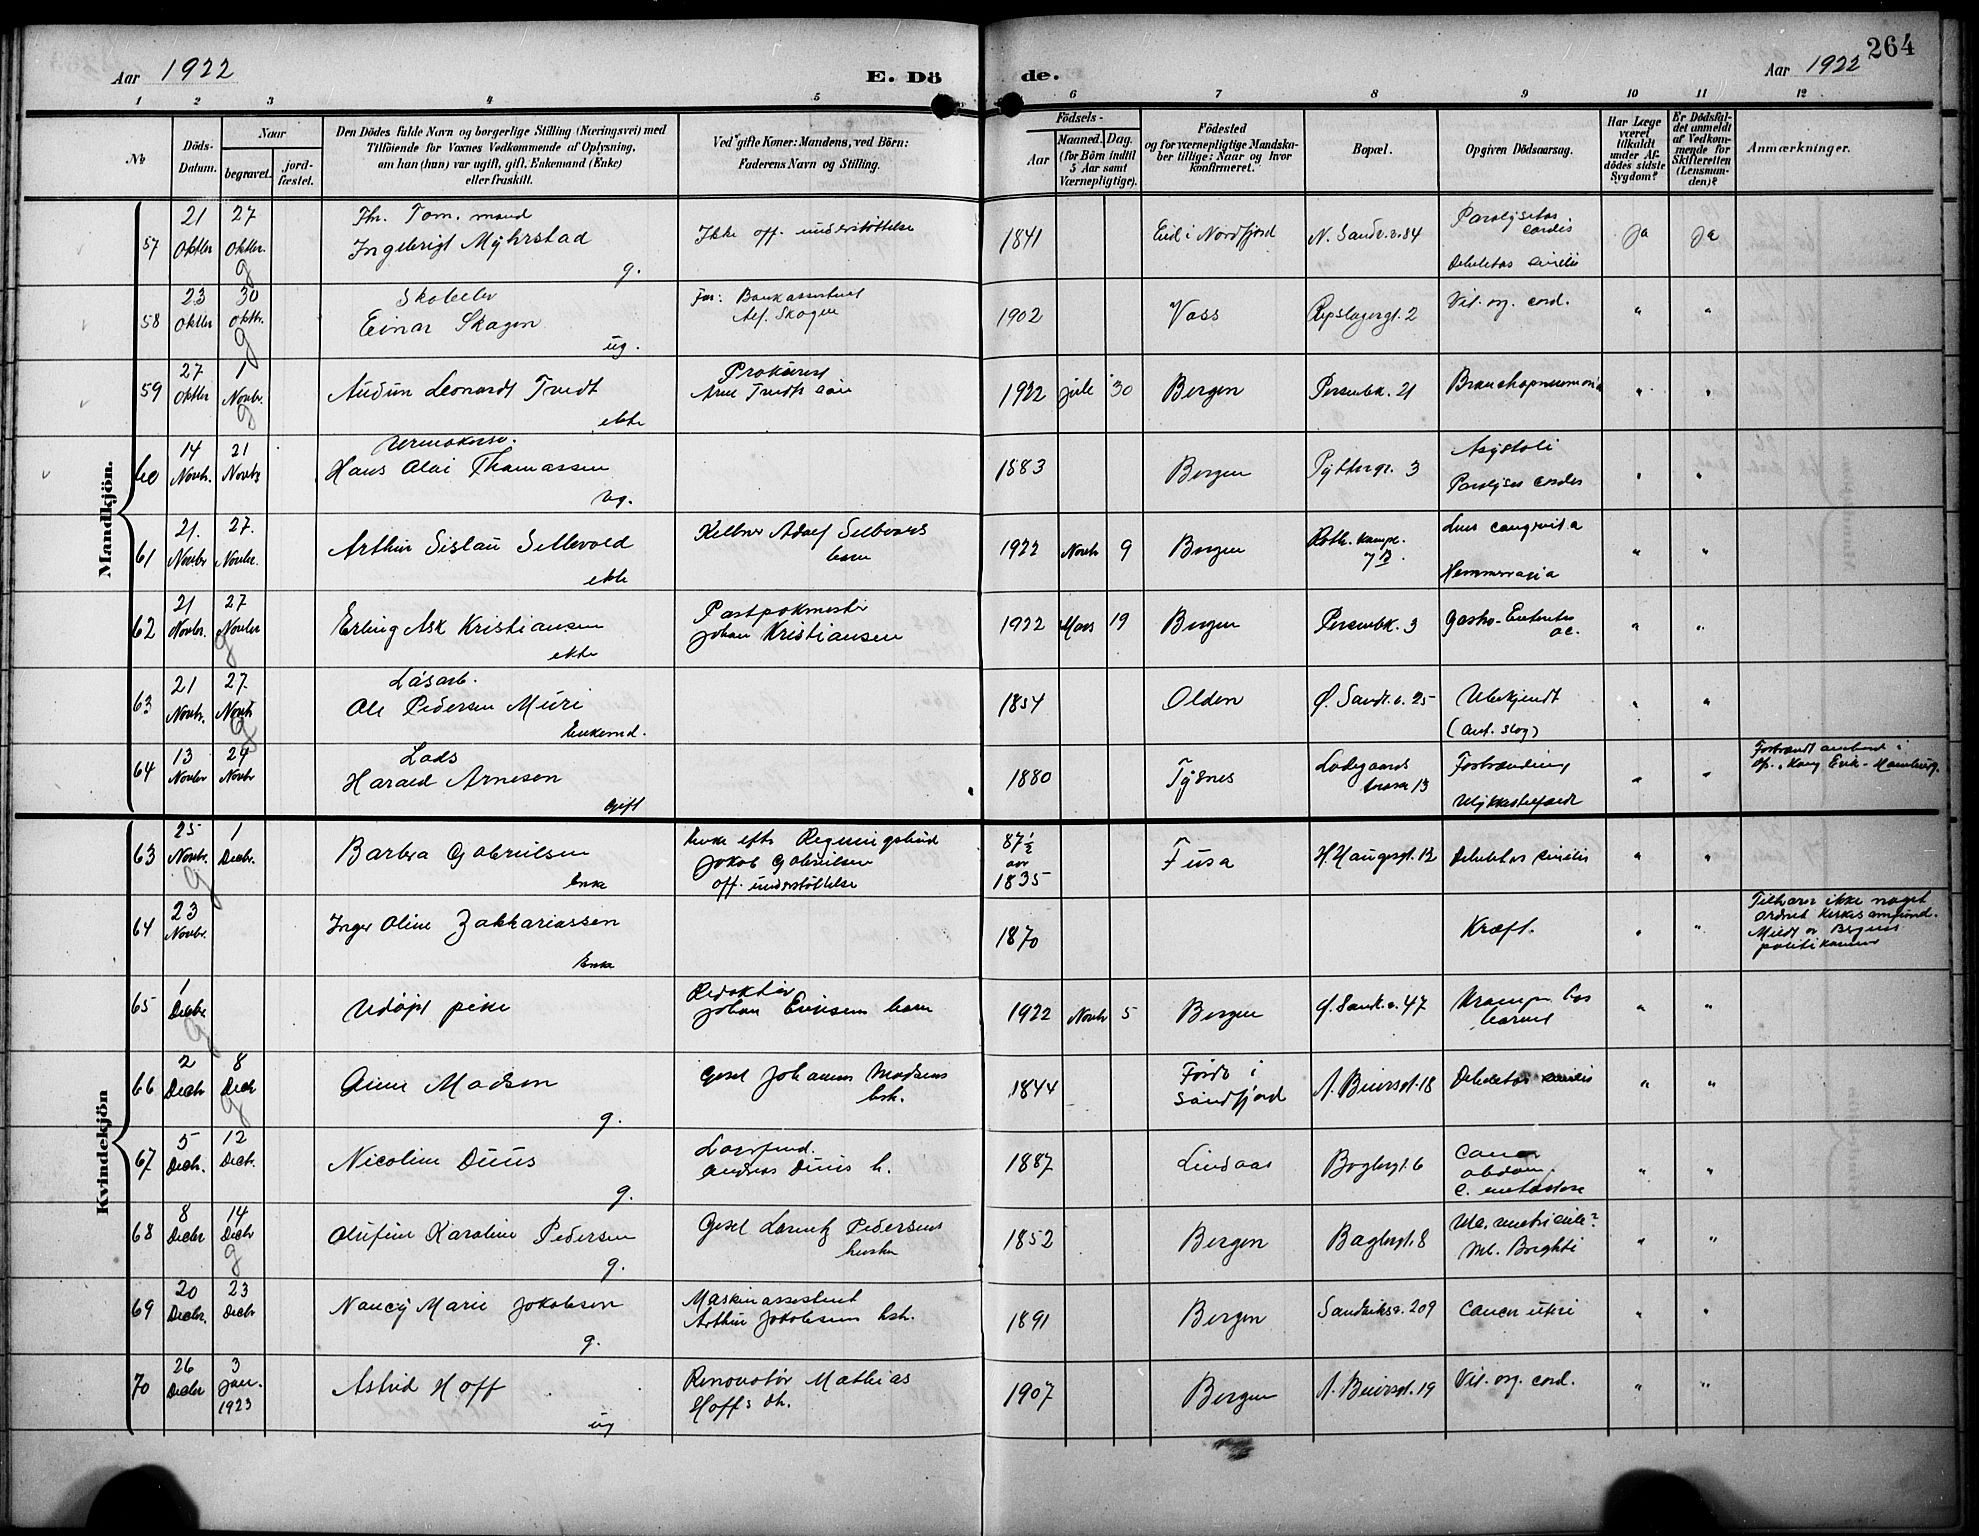 264
Aar 1922
E. Dö
de.
Aar 1922
1 2 3 4 5 6 7 8 9 10 11 12
No
Döds-
Datum.
Naar
begravet.
jord-
fæstet.
Den Dödes fulde Navn og borgerlige Stilling (Næringsvei) med
Tilföiende for Voxnes Vedkommende af Oplysning,
om han (hun) var ugift, gift, Enkemand (Enke)
eller fraskilt.
Ved gifte Koner: Mandens, ved Börn:
Faderens Navn og Stilling.
Födsels-
Aar
Maaned.
Dag.
(for Börn indtil
5 Aar samt
Værnepligtige).
Födested
og for værnepligtige Mandska-
ber tillige: Naar og hvor
konfirmeret.
Bopæl.
Opgiven Dödsaarsag.
Har Læge
været
tilkaldt
under Af-
dödes sidste
Sygdom?
Er Dödsfal-
det anmeldt
af Vedkom-
mende for
Skifteretten
(Lensman-
den)?
Anmærkninger.
Mandkjön.
57
21
Oktbr
27
Oktbr.
Fhv. Tom. mand
Ingebrigt Myhrstad
g.
Ikke off. understøttelse
1841
Eid i Nordfjord
N. Sandv.v. 84
Paralysetas
cordis
Debelitas senilis
Ja
Ja
58
23
Oktbr
30
Oktbr.
Skoleelev
Einar Skagen
ug.
Far: Bankassistent
Alf. Skagen
1902
Voss
Repslagergt. 2
Vit. org. cord.
"
"
59
27
Oktbr
1
Novbr.
Audun Leonardt Tvedt
ekte
Prokurist
Arne Tvedts søn
1922
juli
30
Bergen
Persenbk. 21
Bronchopneumonia
"
"
60
14
Novbr.
21
Novbr
Urmakersv.
Hans Olai Thomassen
ug.
1883
Bergen
Pyttergt. 3
Asystoli
Paralyses cordis
"
"
61
21.
Novbr
27.
Novbr.
Arthur Sellevold
ekte
Kellner Adolf Sellevolds
barn
1922
Novbr
9
Bergen
Roth. kampe.
7 B.
Lues congenita
"
"
62
21
Novbr.
27
Novbr
Erling Ask Kristiansen
ekte
Postpakmester
Johan Kristiansen
1922
Mars
19
Bergen
Persenbk. 3
Gastro-Enteritis
ac.
"
"
63
21
Novbr.
27.
Novbr
Løsarb.
Ole Pedersen Muri
Enkemd.
1854
Olden
Ø. Sandv.v. 25
Ubekjendt
(Ant. slag)
"
"
64
13
Novbr
24
Novbr
Lods
Harald Arnesen
Gift
1880
Tysnes
Ladegaards
terasse 13
Forbrænding
Ulykkestilfælde
"
"
Forbrændt ombord i
D/S "Kong Erik" - Hamburg.
Kvindekjön
63
25
Novbr.
1
Decbr.
Barbra Gabrielsen
Enke
Enke efter Regningsbud
Jakob Gabrielsen
off. understøttelse
87½
aar
1835
Fusa
H. Haugesgt. 12
Debelitas senilis
"
"
64
23
Novbr.
Inger Oline Zakkariassen
Enke
1870
Kræft.
"
"
Tilhører ikke noget
ordnet Kirkesamfund.
Meldt av Bergens
politikammer
65
1
Decbr
Udøpt pike
Redaktør
Johan Eriksens barn
1922
Novbr
5
Bergen
Ø. Sandv.v. 47
Krampe hos
barnet
"
"
66
2
Decbr
8
Decbr
Anne Madsen
g.
Gesel Johannes Madsens
hsk.
1844
Førde i
Søndfjord
N. Beiersgt. 18
Debelitas senilis
"
"
67
5
Decbr.
12
Decbr.
Nicoline Duus
g.
Andreas Duus h.
1887
Lindaas
Baglergt. 6
Cancer
abdom.
c. metastase
"
"
68
8
Decbr
14
Decbr
Olufine Karoline Pedersen
g.
Gesel Lorentz Pedersens
hustru
1852
Bergen
Baglergt. 8
Ulc. ventriculi?
Mb. Brighti
"
"
69
20
Decbr.
23
Decbr
Nancy Marie Jakobsen
g.
Maskinassistent
Arthur Jakobsens hsk.
1891
Bergen
Sandviksv. 209
Cancer uteri
"
"
70
26
Decbr
3
Jan.
1923
Astrid Hoff
ug
Renovatør Mathias
Hoffs dt.
1907
Bergen
N. Beiersgt. 19
Vit. org. cord.
"
"